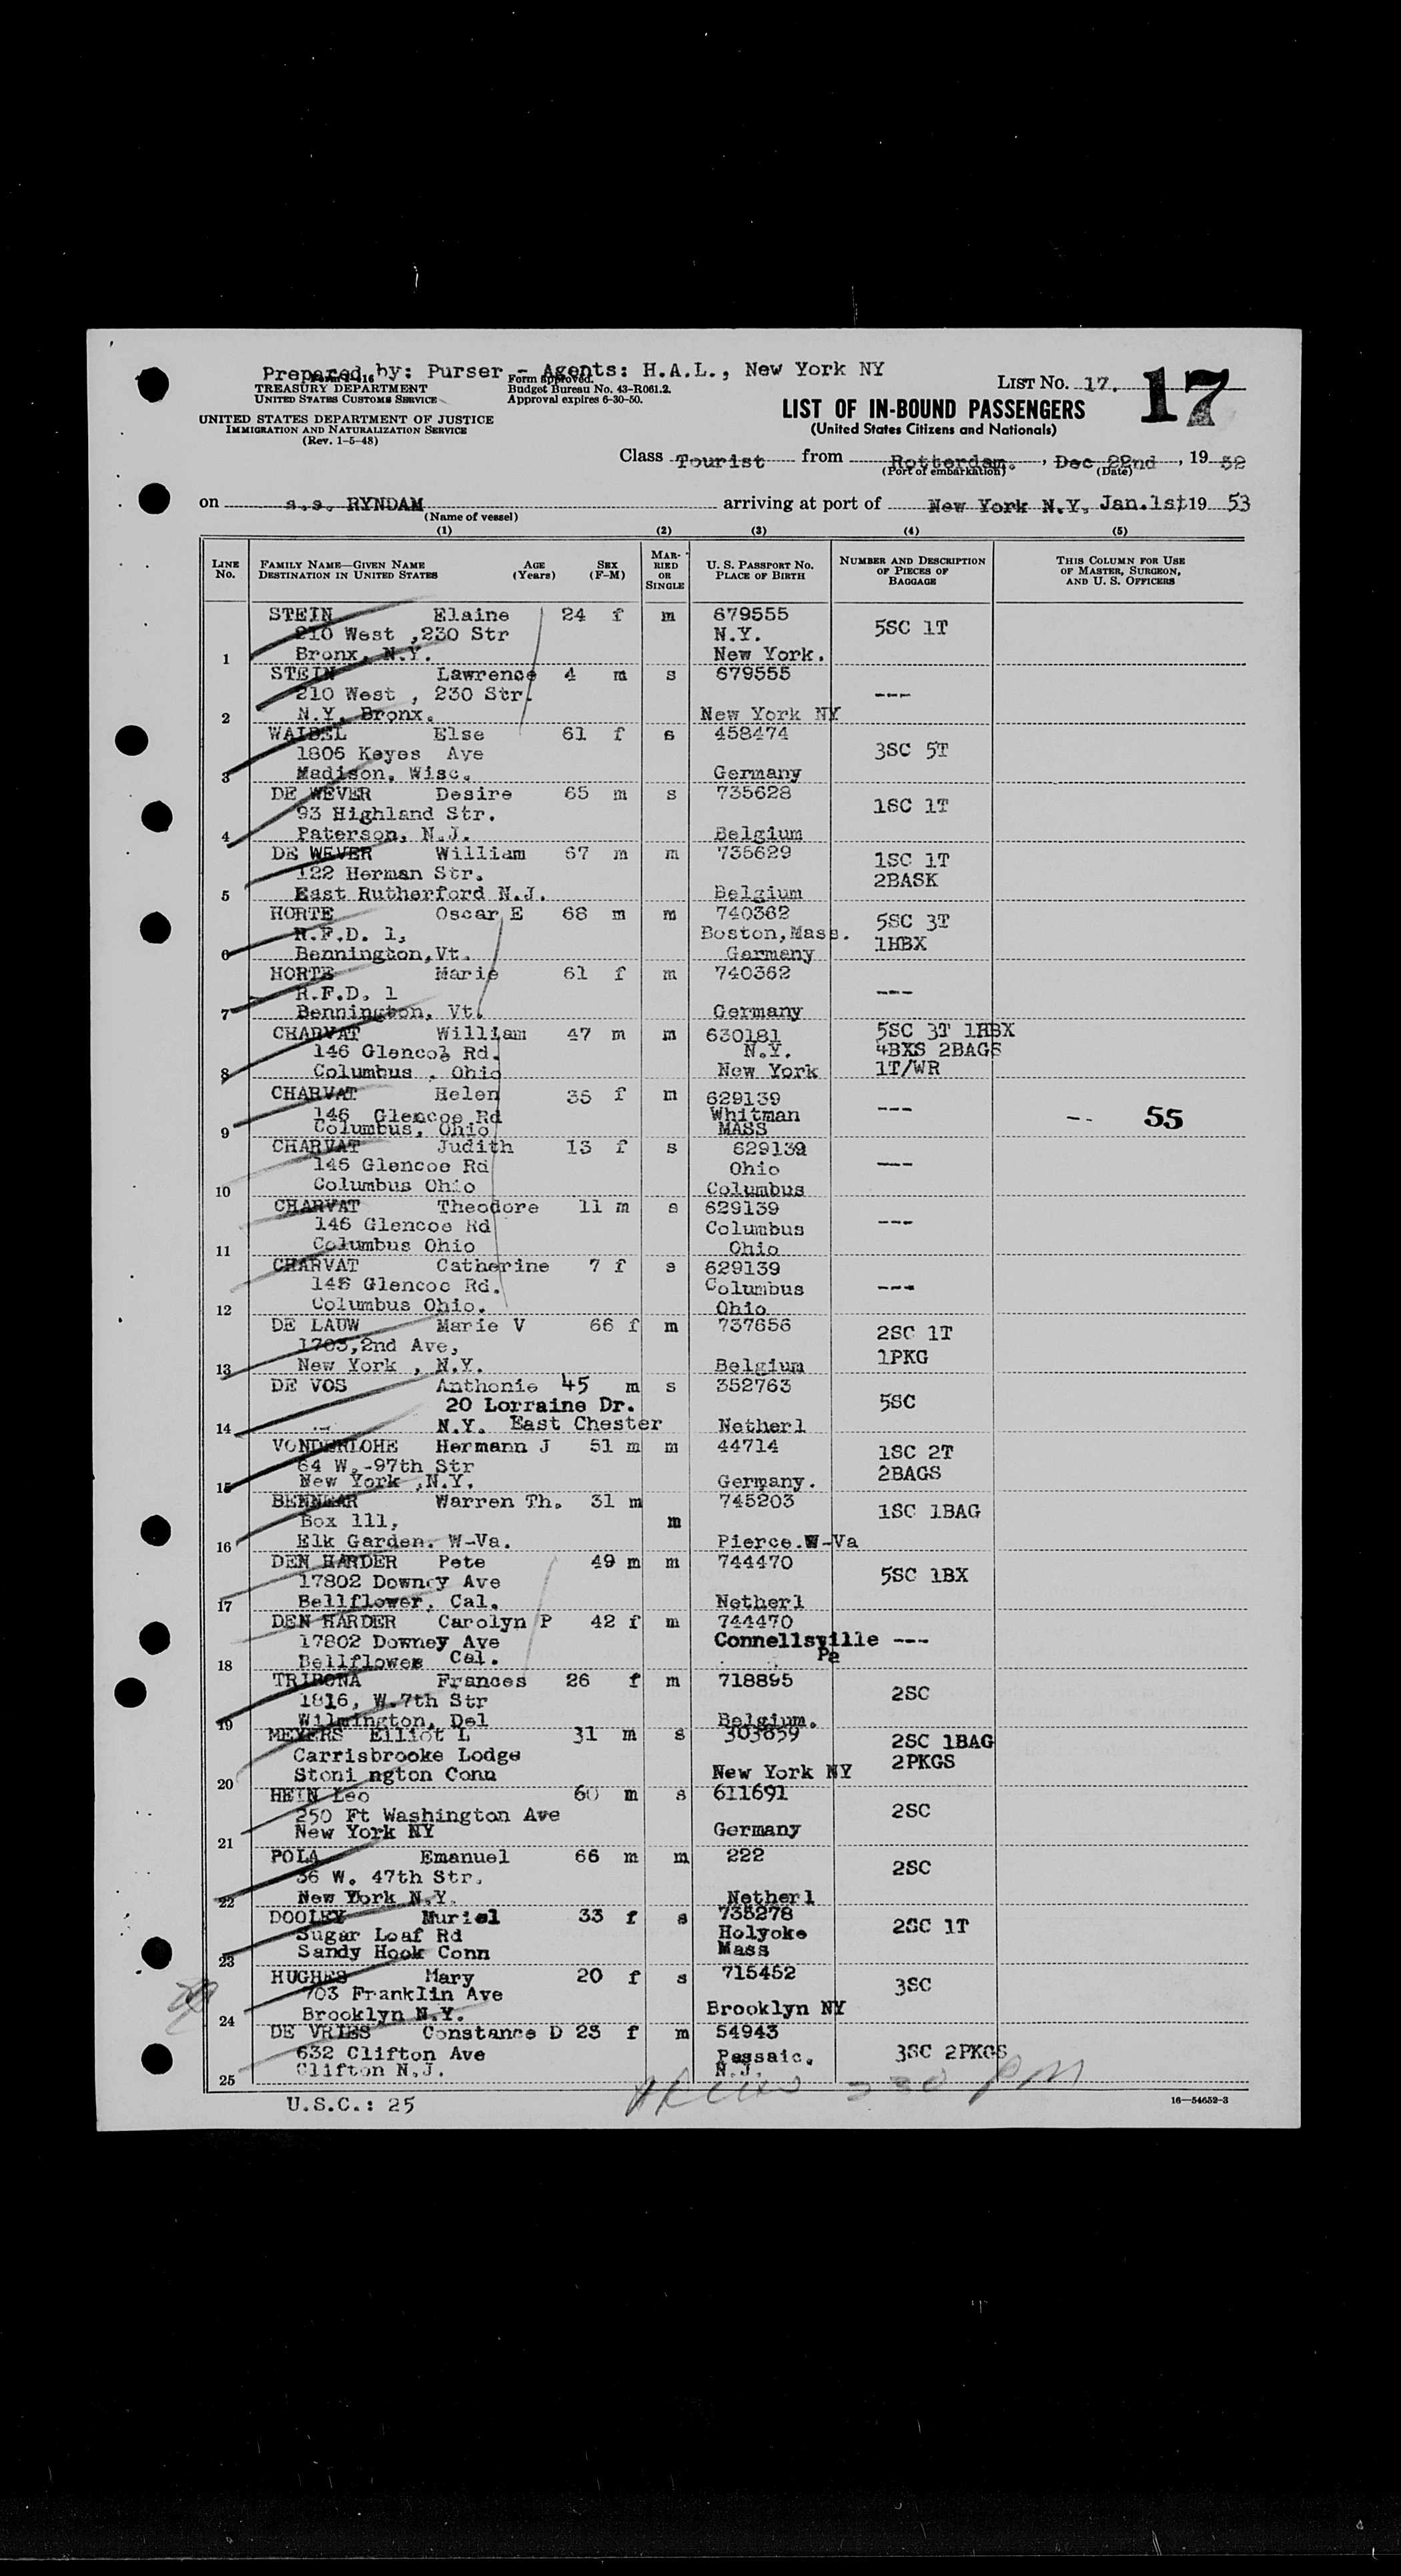 Prepared by: Purser - Agents: H.A.L., New York NY
TREASURY DEPARTMENT
UNITED STATES CUSTOMS SERVICE
Form approved.
Budget Bureau No. 43-R061.2.
Approval expires 6-30-50.
LIST NO. 17. 17
UNITED STATES DEPARTMENT OF JUSTICE
IMMIGRATION AND NATURALIZATION SERVICE
(Rev. 1-5-48)
LIST OF IN-BOUND PASSENGERS
(United States Citizens and Nationals)
Class Tourist from Rotterdam. , Dec 22nd , 19 52
(Port of embarkation) (Date)
on s.s. RYNDAM arriving at port of New York N.Y. Jan.1st 19 53
(Name of vessel)
(1) (2) (3) (4) (5)
LINE NO. FAMILY NAME—GIVEN NAME DESTINATION IN UNITED STATES AGE (Years) SEX (F-M) MARRIED OR SINGLE U. S. PASSPORT NO. PLACE OF BIRTH NUMBER AND DESCRIPTION OF PIECES OF BAGGAGE THIS COLUMN FOR USE OF MASTER, SURGEON, AND U. S. OFFICERS
STEIN Elaine 24 f m 679555 5SC 1T
210 West ,230 Str N.Y.
1 Bronx, N.Y. New York.
STEIN Lawrence 4 m s 679555
210 West , 230 Str. ---
2 N.Y. Bronx. New York NY
WAIBEL Else 61 f s 458474
1806 Keyes Ave 3SC 5T
3 Madison, Wisc. Germany
DE WEVER Desire 65 m s 735628
93 Highland Str. 1SC 1T
4 Paterson, N.J. Belgium
DE WEVER William 67 m m 735629 1SC 1T
122 Herman Str. 2BASK
5 East Rutherford N.J. Belgium
HORTE Oscar E 68 m m 740362 5SC 3T
R.F.D. 1, Boston,Mass. 1HBX
6 Bennington,Vt. Germany
HORTE Marie 61 f m 740362
R.F.D. 1 ---
7 Bennington, Vt. Germany
CHARVAT William 47 m m 630181 5SC 3T 1HBX
146 Glencoe Rd. N.Y. 4BXS 2BAGS
8 Columbus , Ohio New York 1T/WR
CHARVAT Helen 35 f m 629139
146 Glencoe Rd Whitman --- -- 55
9 Columbus, Ohio MASS
CHARVAT Judith 13 f s 629139
146 Glencoe Rd Ohio ---
10 Columbus Ohio Columbus
CHARVAT Theodore 11 m s 629139
146 Glencoe Rd Columbus ---
11 Columbus Ohio Ohio
CHARVAT Catherine 7 f s 629139
146 Glencoe Rd. Columbus ---
12 Columbus Ohio. Ohio
DE LAUW Marie V 66 f m 737656 2SC 1T
1703,2nd Ave, 1PKG
13 New York , N.Y. Belgium
DE VOS Anthonie 45 m s 352763
20 Lorraine Dr. 5SC
14 N.Y. East Chester Netherl
VONDERLOHE Hermann J 51 m m 44714 1SC 2T
64 W.-97th Str 2BAGS
15 New York ,N.Y. Germany.
BENNEAR Warren Th. 31 m m 745203
Box 111, 1SC 1BAG
16 Elk Garden. W-Va. Pierce.W-Va
DEN HARDER Pete 49 m m 744470
17802 Downey Ave 5SC 1BX
17 Bellflower, Cal. Netherl
DEN HARDER Carolyn P 42 f m 744470
17802 Downey Ave Connellsville ---
18 Bellflower Cal. Pa
TRIBONA Frances 26 f m 718895
1816, W.7th Str 2SC
19 Wilmington, Del Belgium.
MEYERS Elliot L 31 m s 303859 2SC 1BAG
Carrisbrooke Lodge 2PKGS
20 Stoni ngton Conn New York NY
HEIN Leo 60 m s 611691
250 Ft Washington Ave 2SC
21 New York NY Germany
POLA Emanuel 66 m m 222
36 W. 47th Str. 2SC
22 New York N.Y. Netherl
DOOLEY Muriel 33 f s 735278
Sugar Loaf Rd Holyoke 2SC 1T
23 Sandy Hook Conn Mass
HUGHES Mary 20 f s 715452
703 Franklin Ave 3SC
24 Brooklyn N.Y. Brooklyn NY
DE VRIES Constance D 23 f m 54943
632 Clifton Ave Passaic. 3SC 2PKGS
25 Clifton N.J. N.J.
U.S.C.: 25
PM
16—54652-3